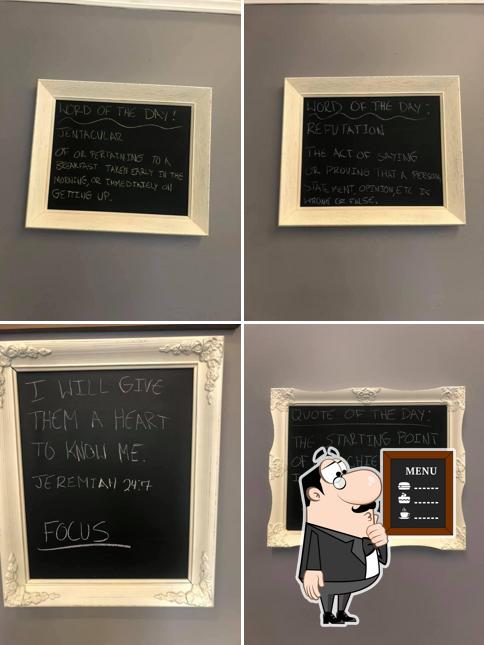 WORD OF THE DAY!
JENTACULAR
OF OR PERTAINING TO A
BREAKFAST TAKEN EARLY IN THE
MORNING, OR IMMEDIATELY ON
GETTING UP.
WORD OF THE DAY:
REPUTATION
THE ACT OF SAYING
OR PROVING THAT A PERSON,
STATEMENT, OPINION, ETC IS
WRONG OR FALSE.
I WILL GIVE
THEM A HEART
TO KNOW ME.
JEREMIAH 24:7
FOCUS
QUOTE OF THE DAY:
THE STARTING POINT
OF
MENU